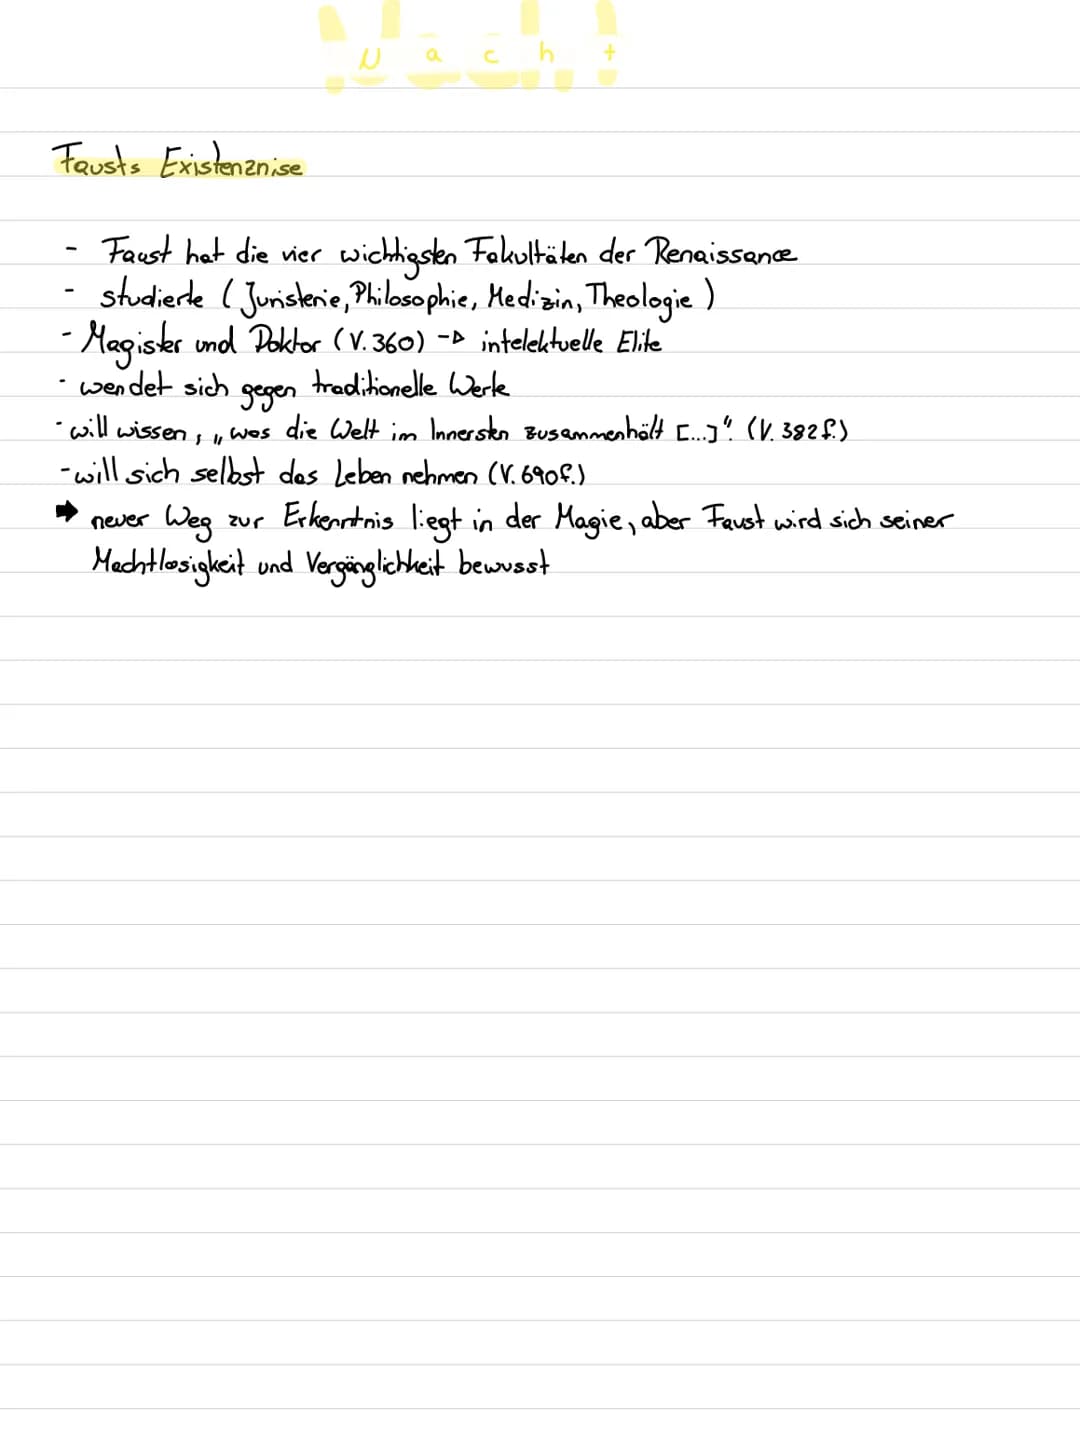 Nacht
Fausts Existenznise
- Faust hat die vier wichtigsten Fakultäten der Renaissance
- studierte (Juristerie, Philosophie, Medizin, Theologie)
- Magister und Doktor (V. 360) -▷ intelektuelle Elite
- wendet sich gegen traditionelle Werke
- will wissen, „was die Welt im Innersten zusammenhält [...]“. (V. 382f.)
- will sich selbst das Leben nehmen (V. 690f.)
➡ neuer Weg zur Erkenntnis liegt in der Magie, aber Faust wird sich seiner
Machtlosigkeit und Vergänglichkeit bewusst